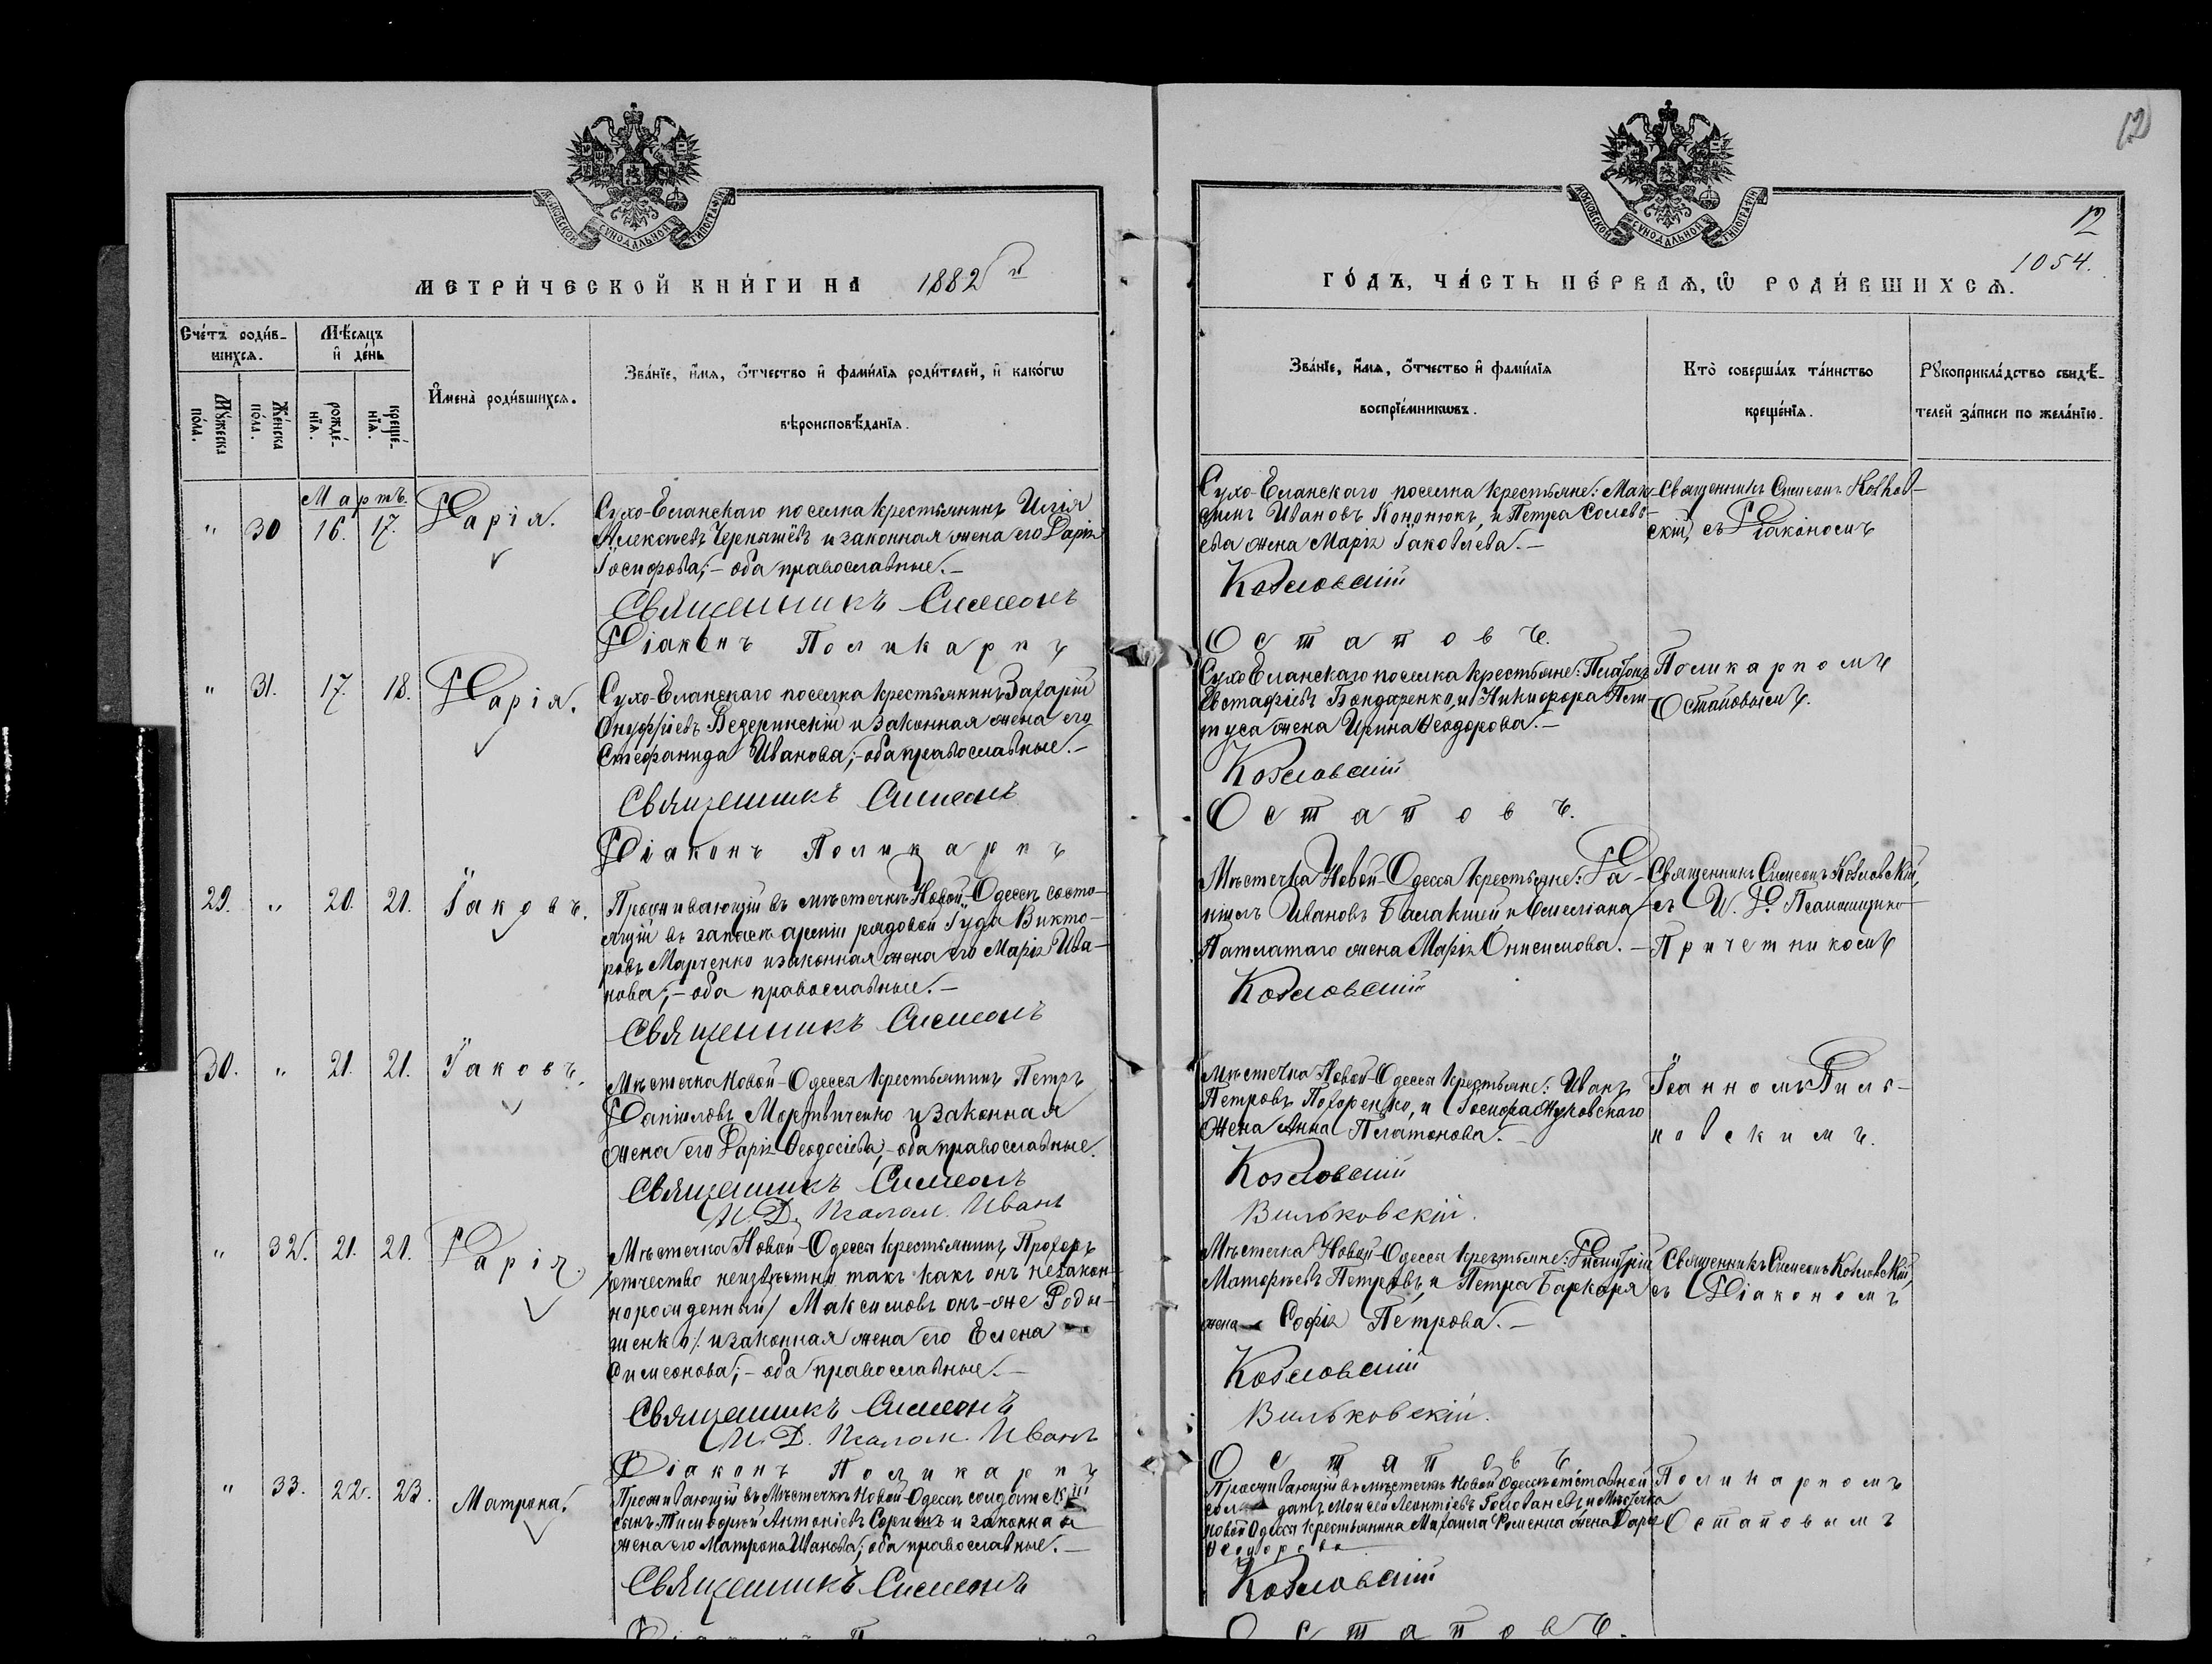 12
МОСКОВСКОЙ СѴНОДАЛЬНОЙ ТИПОГРАФІИ
МОСКОВСКОЙ СѴНОДАЛЬНОЙ ТИПОГРАФІИ
12
1054.
МЕТРИ́ЧЕСКОЙ КНИ́ГИ НА 1882й
ГО́ДЪ, ЧА́СТЬ ПЕ́РВАѦ, Ѡ РОДИ́ВШИХСѦ.
Сче́тъ роди́в-
шихсѧ.
Мꙋ́жеска
по́ла.
Же́нска
по́ла.
Мѣ́сѧцъ
и҆ де́нь
рожде́-
нїѧ.
креще́-
нїѧ.
И҆мена̀ роди́вшихсѧ.
Зва́нїе, и҆́мѧ, ѻ҆́тчество и҆ фами́лїѧ роди́телей, и҆ како́гѡ
вѣроисповѣ́данїѧ.
Зва́нїе, и҆́мѧ, ѻ҆́тчество и҆ фами́лїѧ
воспрїе́мникѡвъ.
Кто̀ соверша́лъ та́инство
креще́нїѧ.
Рꙋкоприкла́дство свидѣ́-
телей за́писи по жела́нїю.
Мартъ.
" 30 16. 17. Дарія.
Сухо-Еланскаго поселка крестьянинъ Илія
Алексѣевъ Чернышёвъ и законная жена его Дарія
Іосифова; – оба православные. –
Священникъ Симеонъ
Діаконъ Поликарпъ
Сухо-Еланскаго поселка крестьяне: Мак-
симъ Ивановъ Кононюкъ, и Петра Соловь-
ева жена Марія Іаковлева. –
Козловскій
Остаповъ.
Священникъ Симеонъ Козлов-
скій, съ Діакономъ
" 31. 17. 18. Дарія.
Сухо-Еланскаго поселка крестьянинъ Захарій
Онуфріевъ Ведеринскій и законная жена его
Стефанида Иванова; – оба православные. –
Священникъ Симеонъ
Діаконъ Поликарпъ
Сухо-Еланскаго поселка крестьяне: Платонъ
Евстафіевъ Бондаренко, и Никифора Пет-
туса жена Ирина Ѳеодорова. –
Козловскій
Остаповъ.
Поликарпомъ
Остаповымъ.
29. " 20. 21. Іаковъ.
Проживающій въ мѣстечкѣ Новой-Одессѣ состо-
ящій въ запасѣ арміи рядовой Іуда Викто-
ровъ Марченко и законная жена его Марія Ива-
нова; – оба православные. –
Священникъ Симеонъ
Мѣстечка Новой-Одессы крестьяне: Да-
ніилъ Ивановъ Балакшей и Емеліана
Патлатаго жена Марія Онисимова. –
Козловскій
Священникъ Симеонъ Козловскій,
съ И. Д. Псаломщика
Причетникомъ
30. " 21. 21. Іаковъ.
Мѣстечка Новой-Одессы крестьянинъ Петръ
Даніиловъ Мартыниченко и законная
жена его Дарія Ѳеодосіева, – оба православные.
Священникъ Симеонъ
И. Д. Псалом. Иванъ
Мѣстечка Новой-Одессы крестьяне: Иванъ
Петровъ Похоренко, и Іосифа Жуковскаго
жена Анна Платонова. –
Козловскій
Вильковскій.
Іоанномъ Виль-
ковскимъ.
" 32. 21. 21. Дарія.
Мѣстечка Новой-Одессы крестьянинъ Прохоръ
/отчество неизвѣстно такъ какъ онъ незакон-
норожденный/ Максимовъ онъ-же Роды-
шенко/ и законная жена его Елена
Симеонова; – оба православные. –
Священникъ Симеонъ
И. Д. Псалом. Иванъ
Діаконъ Поликарпъ
Мѣстечка Новой-Одессы крестьяне: Димитрій
Матфѣевъ Петровъ, и Петра Баркаря
жена Софія Петрова. –
Козловскій
Вильковскій.
Остаповъ
Священникъ Симеонъ Козловскій,
съ Діакономъ
" 33. 22. 23. Матрона.
Проживающій въ Мѣстечкѣ Новой-Одессѣ солдатскій
сынъ Тимоѳей Антоніевъ Соричъ и законная
жена его Матрона Иванова; оба православные. –
Священникъ Симеонъ
Проживающій въ мѣстечкѣ Новой Одессѣ отставной
солдатъ Моисей Леонтіевъ Голованевъ и Мѣстечка
Новой Одессы крестьянина Михаила Роменка жена Дарія
Ѳеодорова
Козловскій
Остаповъ.
Поликарпомъ
Остаповымъ